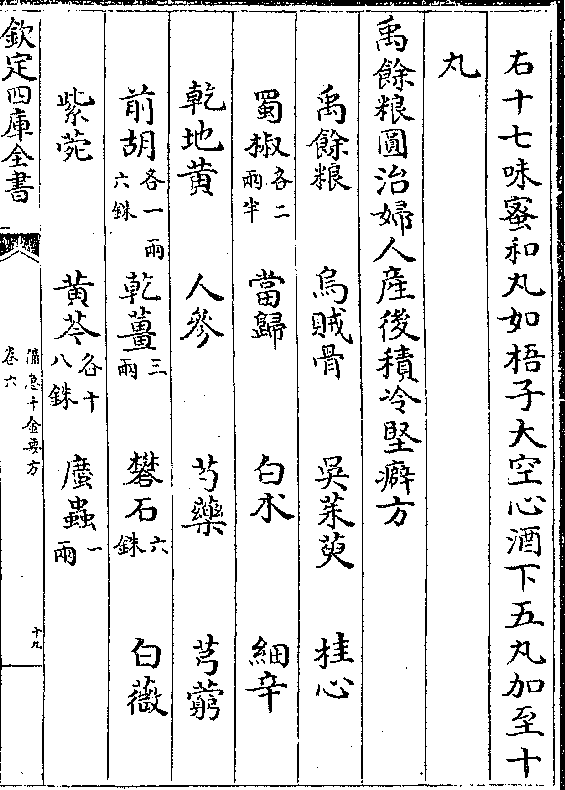 右十七味蜜和丸如梧子大空心酒下五丸加至十
丸
禹餘粮圓治婦人産後積冷堅癖方
禹餘粮 烏賊骨 吳茱萸 桂心
蜀椒各二兩半 當歸 白朮 細辛
乾地黄 人參 芍藥 芎藭
前胡各一兩六銖 乾薑三兩 礬石六銖 白薇
紫菀 黄芩各十八銖 䗪蟲一兩
欽定四庫全書
備急千金要方
卷六
十九